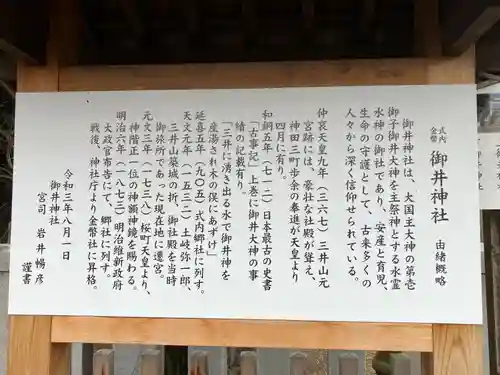 式内
金幣
御井神社
由緒概略
御井神社は、大国主大神の第壱
御子御井大神を主祭神とする水霊
水神の御社であり、安産と育児、
生命の守護として、古来多くの
人々から深く信仰せられている。
仲哀天皇九年(三六七)三井山元
宮跡には、豪壮な社殿が聳え、
神田三町歩余の奉進が天皇より
四月に有り。
和銅五年(七一二)日本最古の史書
「古事記」上巻に御井大神の事
績の記載有り。
「三井に湧き出る水で御井神を
産湯され木の俣にあずけ」
延喜五年(九〇五)式内郷社に列す。
天文元年(一五三二)土岐弥一郎、
三井山築城の折、御社殿を当時
御旅所であった現在地に遷宮。
元文三年(一七三八)桜町天皇より、
神階正一位の神額神鏡を賜わる。
明治六年(一八七三)明治維新政府
太政官布告にて、郷社に列す。
戦後、神社庁より金幣社に昇格。
令和三年八月一日
御井神社
宮司 岩井 暢彦
謹書